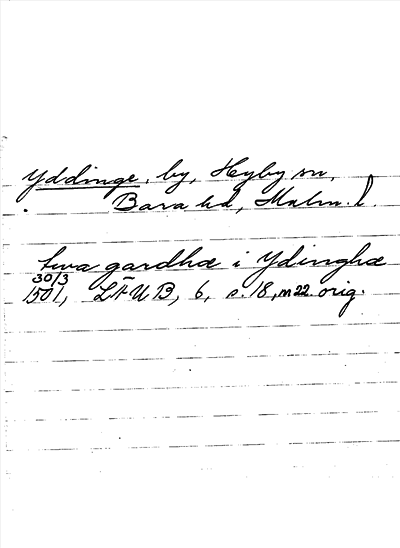 Yddinge, by, Hyby sn,
Bara hd, Malm. l.
twa gardhæ i Ydinghæ
30/3
1501, LÄUB, 6, s. 18, m22 orig.